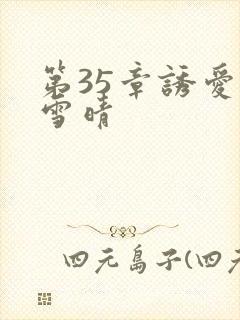 第35章誘愛
雪晴
四元島子(四元